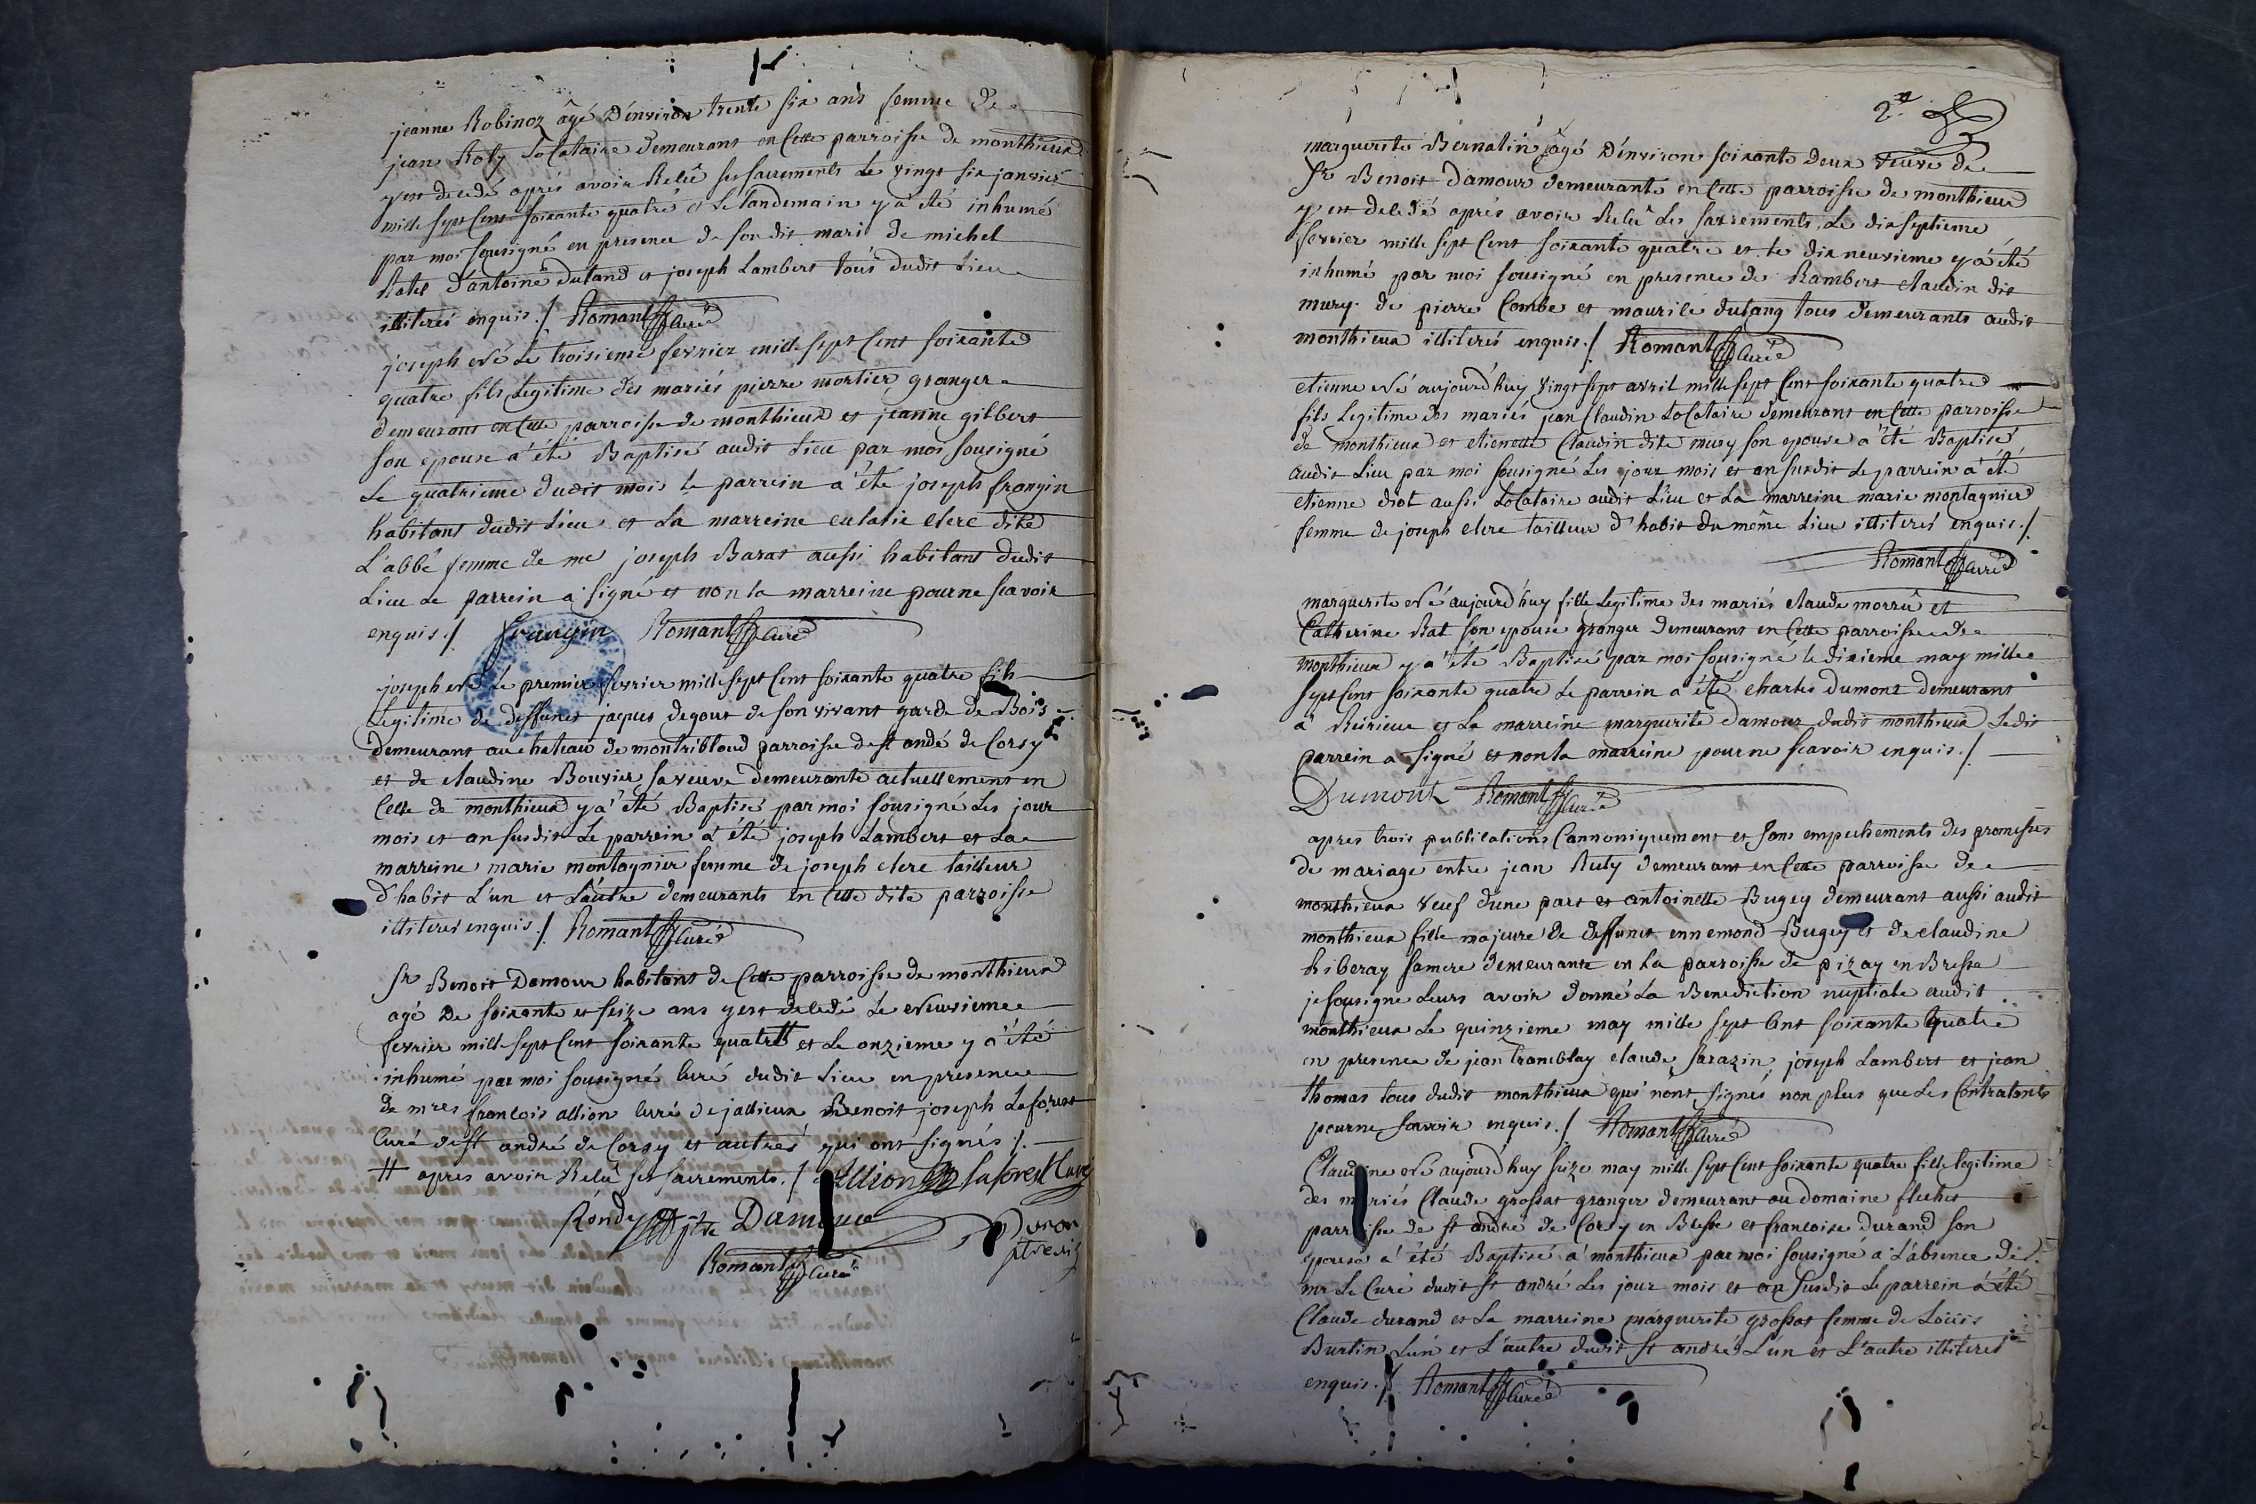 jeanne Robinoz âgé D'environ trente six ans femme de
jean Roly Locataire demeurans en Cette parroisse de monthieux
y est decedé aprés avoir Relû ses sacrements Le vingt six janvier
mille sept Cent soixante quatre et Le landemain y a été inhumé
par moi sousigné en presence de son dit mari de michel
Ratel d'antoine dutand et joseph Lambert tous dudit Lieu
illiterés enquis ./ Romant Curé
joseph né Le troisieme fevrier mille sept Cent soixante
quatre fils Legitime des mariés pierre mortier granger
demeurant en Cette parroisse de monthieux et jeanne gilbert
son epouse a été Baptisé audit Lieu par moi sousigné
Le quatrieme dudit mois le parrein a été joseph frangin
habitant dudit Lieu et La marreine eulalie clerc dite
L'abbé femme de me joseph Barat aussi habitant dudit
Lieu Le parrein a signé et non la marreine pour ne scavoir
enquis ./ frangin Romant Curé
joseph né Le premier fevrier mille sept Cent soixante quatre fils
Legitime de deffunct jacques degout de son vivant garde de Bois
demeurant au chateau de montribloud parroisse de st andé de Corsy
et de claudine Bouvier sa veuve demeurante actuellement en
Celle de monthieux y a été Baptisé par moi sousigné Les jour
mois et an susdit Le parrein a été joseph Lambert et La
marreine marie montagnier femme de joseph clerc tailleur
d'habit L'un et L'autre demeurants en Cette dite parroisse
illiterés enquis ./ Romant Curé
Sr Benoit Damour habitant de Cette parroisse de monthieux
agé de soixante et seize ans y est decedé Le neuvieme
fevrier mille sept Cent soixante quatre # et Le onzieme y a été
inhumé par moi sousigné Curé dudit Lieu en presence
de mres francois allion Curé de jallieux Benoit joseph Laforest
Curé de st andré de Corsy et autres qui ont signés /.
# apres avoir Relû ses sacrements ./ Allion Laforest Curé
Ronde ptre Damour
Romant Curé
2e
marguerite Bernalin âgé D'environ soixante deux veuve de
Sr Benoit damour demeurante en Cette parroisse de monthieux
y est decedé aprés avoir Relû Les sacrements Le dixseptieme
fevrier mille sept Cent soixante quatre et le dix neuvieme y a été
inhumé par moi sousigné en presence de Rambert claudin dit
mury de pierre Combe et maurile dutang tous demeurants audit
monthieux illiterés enquis ./ Romant Curé
etienne né aujourd'huy vingt sept avril mille sept Cent soixante quatre
fils Legitime des mariés jean Claudin Locataire demeurant en Cette parroisse
de monthieux et etienette Claudin dite mury son epouse a été Baptisé
audit Lieu par moi sousigné Les jour mois et an susdit Le parrein a été
etienne diot aussi Locataire audit Lieu et La marreine marie montagnier
femme de joseph clerc tailleur d'habit du même Lieu illiterés enquis ./
Romant Curé
marguerite né aujourd'huy fille Legitime des mariés claude morrû et
Catherine Rat son epouse granger demeurant en Cette parroisse de
monthieux y a été Baptisé par moi sousigné le dixieme may mille
sept Cent soixante quatre Le parrein a été charles dumont demeurant
a Reirieux et La marreine marguerite damour dudit monthieux Ledit
parrein a signé et non la marreine pour ne scavoir enquis ./
Dumont Romant Curé
apres trois publications Cannoniquement et sans empechements des promesses
de mariage entre jean Ruty demeurant en Cette parroisse de
monthieux veuf d'une part et antoinette Bugey demeurant aussi audit
monthieux fille majeure de deffunct ennemond Bugey et de claudine
Riberay sa mere demeurante en La parroisse de pizay en Bresse
je sousigne Leurs avoir donné La Benediction nuptiale audit
monthieux Le quinzieme may mille sept Cent soixante quatre
en presence de jean tramblay claude sarazin joseph Lambert et jean
thomas tous dudit monthieux qui n'ont signés non plus que Les Contratants
pour ne scavoir enquis ./ Romant Curé
Claudine né aujourd'huy seize may mille sept Cent soixante quatre fille legitime
des mariés Claude grossat granger demeurant au domaine flechet
parroisse de st andré de Corsy en Bresse et francoise durand son
epouse a été Baptisé a monthieux par moi sousigné a L'absence de
mr Le Curé dudit st andré Les jour mois et an susdit Le parrein a été
Claude durand et La marreine marguerite grossat femme de Loüis
Burtin L'un et L'autre dudit st andré L'un et L'autre illiterés
enquis ./ Romant Curé